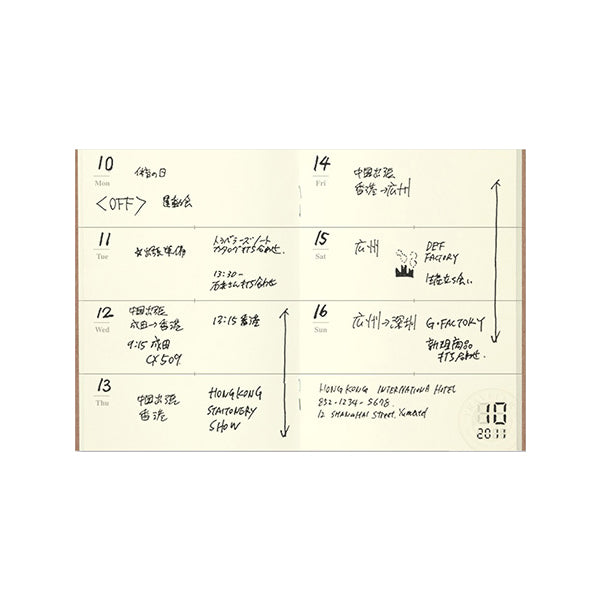 10
Mon
体育の日
<OFF> 運動会
11
Tue
出張準備
トラベラーズノート
カタログ打ち合わせ.
13:30-
打ち合わせ
12
Wed
中国出張
成田→香港
9:15 成田
CX509
13:15 香港
13
Thu
中国出張
香港
HONGKONG
STAITONERY
SHOW
14
Fri
中国出張
香港→広州
15
Sat
広州
DEF
FACTORY
16
Sun
広州→深圳
G・FACTORY
新規商品
打ち合わせ.
HONGKONG INTERNATIONAL HOTEL
852-1234-5678.
12 SHANGHAI Street,
10
2011